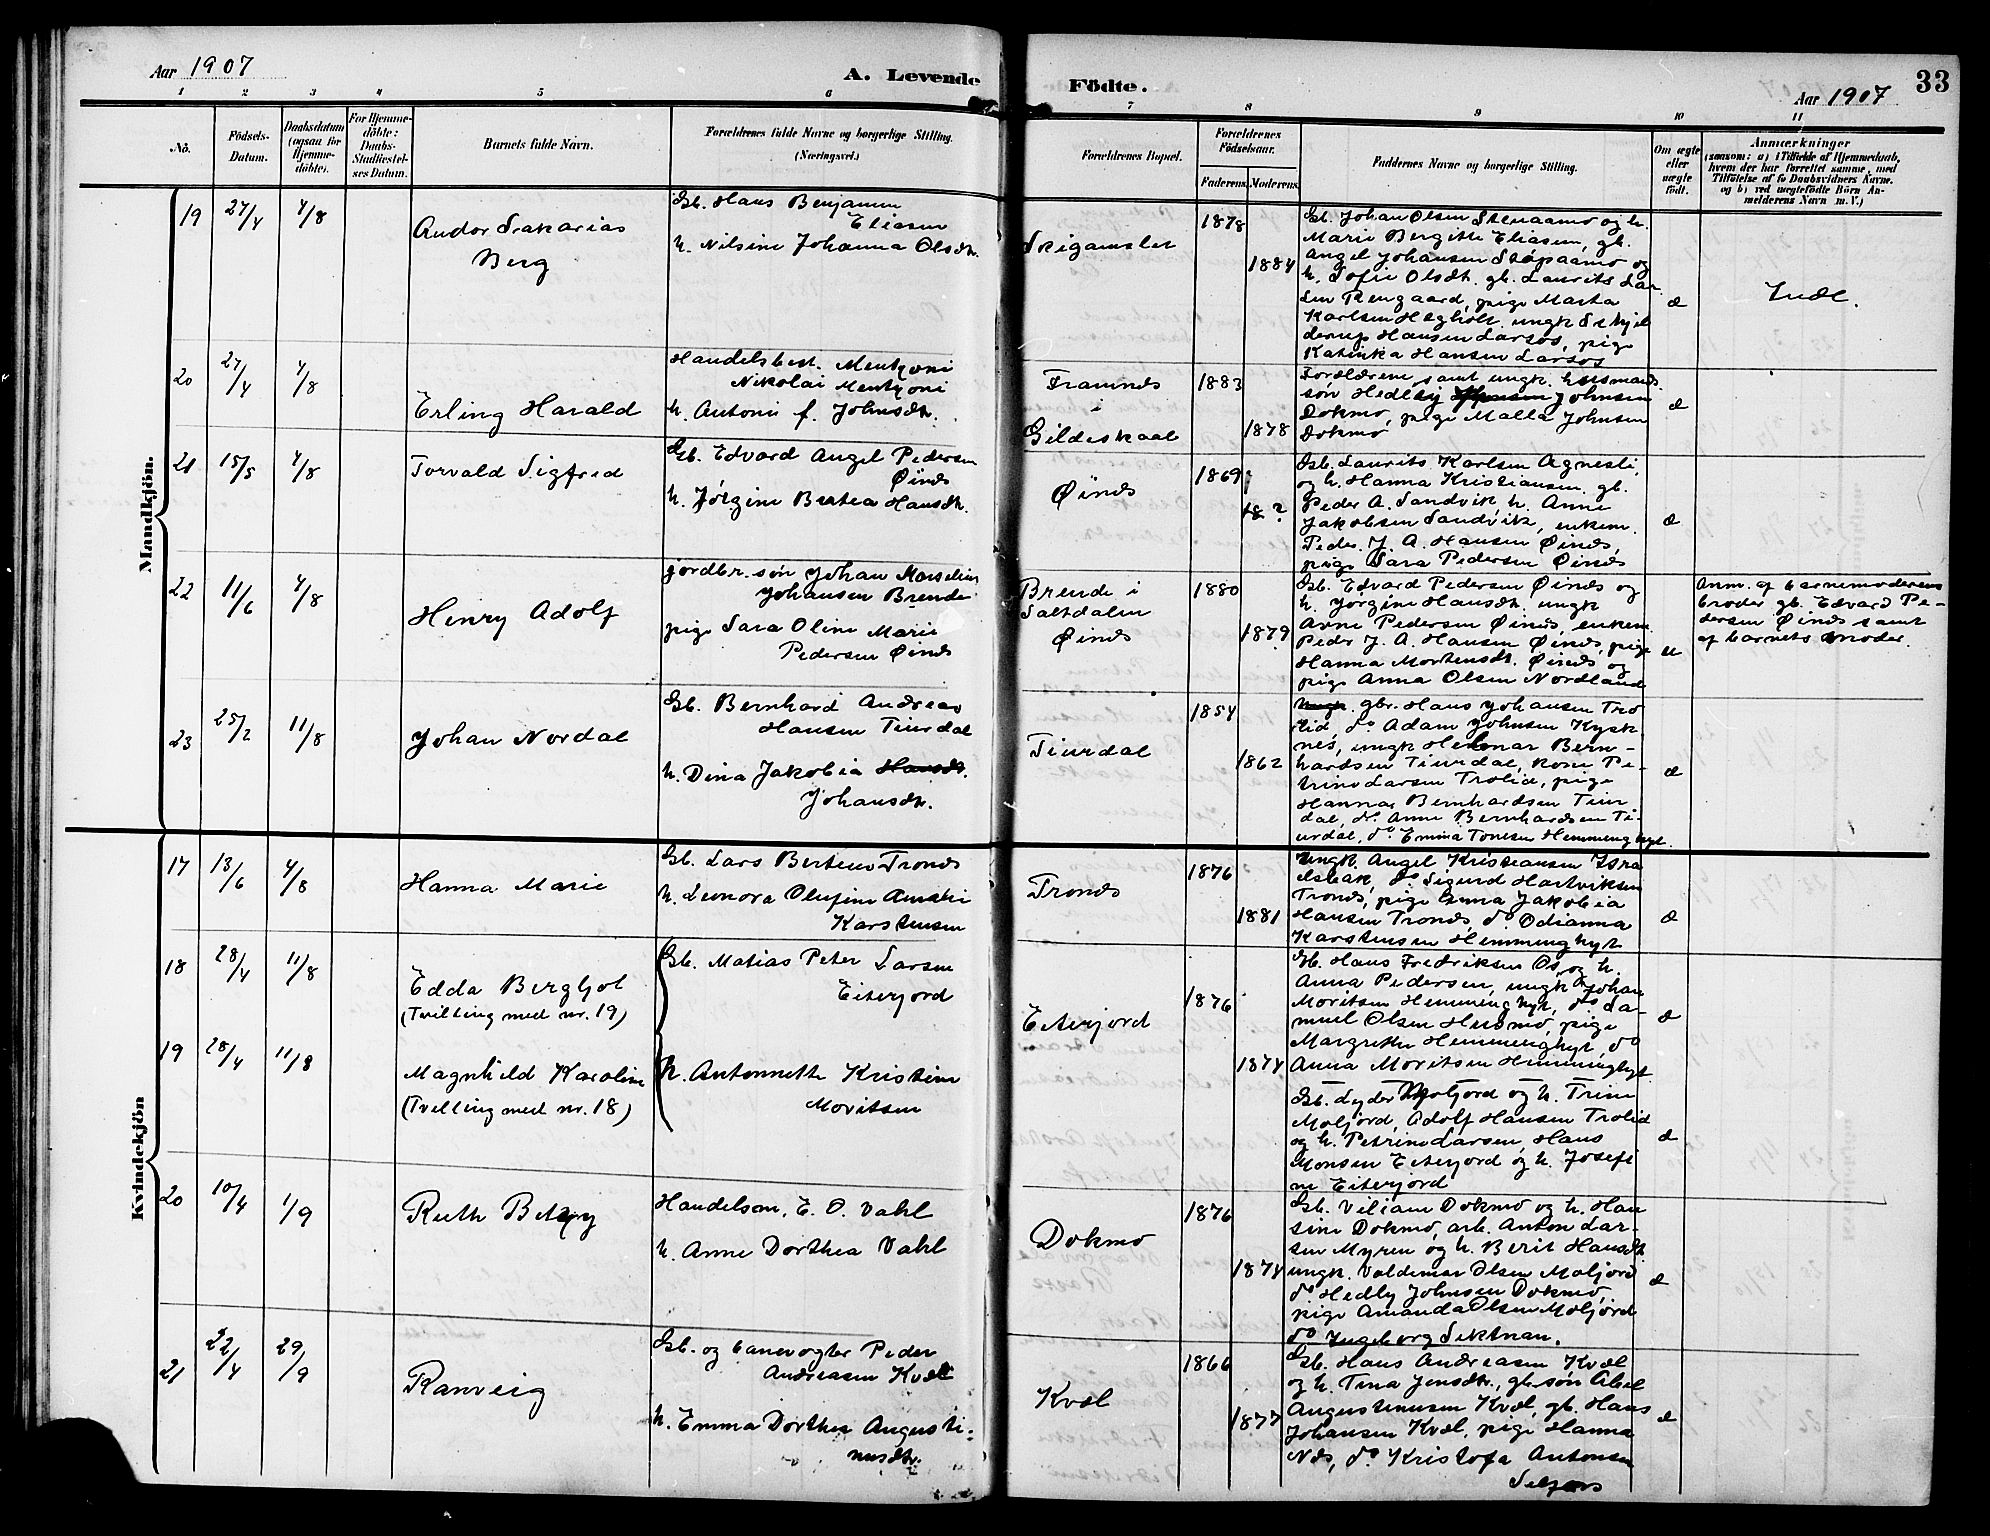 Aar 1907
A. Levende
Födte.
Aar 1907
33
1 2 3 4 5 6 7 8 9 10 11
No.
Födsels-
Datum.
Daabsdatum
(ogsaa for
Hjemme-
döbte).
For Hjemme-
döbte:
Daabs-
Stadfæstel-
ses Datum.
Barnets fulde Navn.
Forældrenes fulde Navne og borgerlige Stilling.
(Næringsvei.)
Forældrenes Bopæl.
Forældrenes
Födselsaar.
Faderens. Moderens.
Faddernes Navne og borgerlige Stilling.
Om ægte
eller
uægte
födt.
Anmærkninger
(saasom: a) i Tilfælde af Hjemmedaab,
hvem der har forrettet samme, med
Tilföielse af to Daabsvidners Navne,
og b) ved uægtefödte Börn An-
melderens Navn m. V.)
Mandkjön.
19 27/4 4/8
Andor Sakarias
Berg
Gb. Hans Benjamin
Eliasen
h. Nilsine Johanna Olsdtr.
Skigamslet
1878
1884
Gb. Johan Olsen Stenaamo og h.
Marie Bergitte Eliasen, gb.
Angel Johansen Støpaamo og
h. Sofie Olsdtr. gb. Laurits Lar
sen Rengaard, pige Marta
Karlsen Hegholt ungk Skjel
derup Hansen Larsos, pige
Katinka Hansen Larsos
æ
Indl.
20 27/4 4/8
Erling Harald
Handelsbest. Mentzoni
Nikolai Mentzoni
h. Antonie f. Johnsdtr.
Framnes
i
Gildeskaal
1883
1878
Forældrene samt ungk. husmands
søn Hedley Johnsen
Dokmo, pige Malla Johnsen
Dokmo
æ
21 15/5 4/8
Torvald Sigfred
Gb. Edvard Angel Pedersen
Øines
h. Jørgine Bertea Hansdtr.
Øines
1869
18 ?
Gb. Laurits Karlsen Agnesli,
og h. Hanna Kristiansen. gb.
Peder A. Sandvik, h. Anne
Jakobsen Sandvik, enkem.
Peder. J. A. Hansen Øines,
pige Sara Pedersen Øines
æ
22 11/6 4/8
Henry Adolf
jordbr. søn Johan Marselius
Johansen Brende
pige Sara Oline Marie
Pedersen Øines
Brende i
Saltdalen
Øines
1880
1879
Gb. Edvard Pedersen Øines og
h. Jorgine Hansdtr. ungk
Arne Pedersen Øines, enkem
Peder J. A. Hansen Øines, pige
Hanna Mortensdtr. Øines og
pige Anna Olsen Nordland
u
Anm. af barnemoderens
broder gb. Edvard Pe-
dersen Øines samt
af barnets moder.
23 25/2 11/8
Johan Nordal
Gb. Bernhard Andreas
Hansen Tiurdal
h. Dina Jakobia Hansdtr.
Johansdtr.
Tiurdal
1854
1862
Ungk. gbr. Hans Johansen Tro
lid, do Adam Johnsen Kysk
nes, ungk Helmar Bern-
hardsen Tiurdal, kone Pe-
trine Larsen Trolid, pige
Hanna Bernhardsen Tiur
dal, do. Anne Bernhardsen Ti-
urdal, do Emma Tonesen Hemminghyt.
æ
Kvindekjön
17 13/6 4/8
Hanna Marie
Gb. Lars Berteus Trones
h. Leonora Olufine Amalie
Karstensen
Trones
1876
1881
Ungk. Angel Kristiansen Isra
elsbak, do Sigurd Hartviksen
Trones, pige Anna Jakobia
Hansen Trones, do Odianna
Karstensen Hemminghyt
æ
18 28/4 11/8
Edda Bergljot
(Tvilling med nr. 19)
Gb. Matias Peter Larsen
Eiterjord
Eiterjord
1876
Gb. Hans Fredriksen Os, og h.
Anna Pedersen, ungk Johan
Moritsen Hemminghyt, do Sa-
muel Olsen Husmo, pige
Margrethe Hemminghyt, do
Anna Moritsen Hemminghyt
æ
19 28/4 11/8
Magnhild Karoline
(Tvilling med nr. 18)
h. Antonnette Kristine
Moritsen
1874
Gb. Lyder Moljord og h. Trine
Moljord, Adolf Hansen Trolid
og h. Petrine Larsen, Hans
Monsen Eiterjord og h. Josefi
ne Eiterjord
æ
20 10/4 1/9
Ruth Betzy
Handelsm. E. O. Vahl
h. Anne Dorthea Vahl
Dokmo
1876
1874
Gb. Viliam Dokmo og h. Han
sine Dokmo, arb. Anton Lar-
sen Myren og h. Berit Hansdtr
ungk. Valdemar Olsen Moljord
do Hedley Johnsen Dokmo
pige Amanda Olsen Moljord
do Ingeborg Sektnan.
æ
21 22/4 29/9
Ranveig
Gb. og banevogter Peder
Andreasen Kvæl
h. Emma Dorthea Augusti-
nusdtr.
Kvæl
1866
1877
Gb. Hans Andreasen Kvæl
og h. Tina Jensdtr., gb. søn Abel
Augustinusen Kvæl, gb. Hans
Johansen Kvæl, pige Hanna
Nes, do Kristofa Antonsen
Selfors
æ